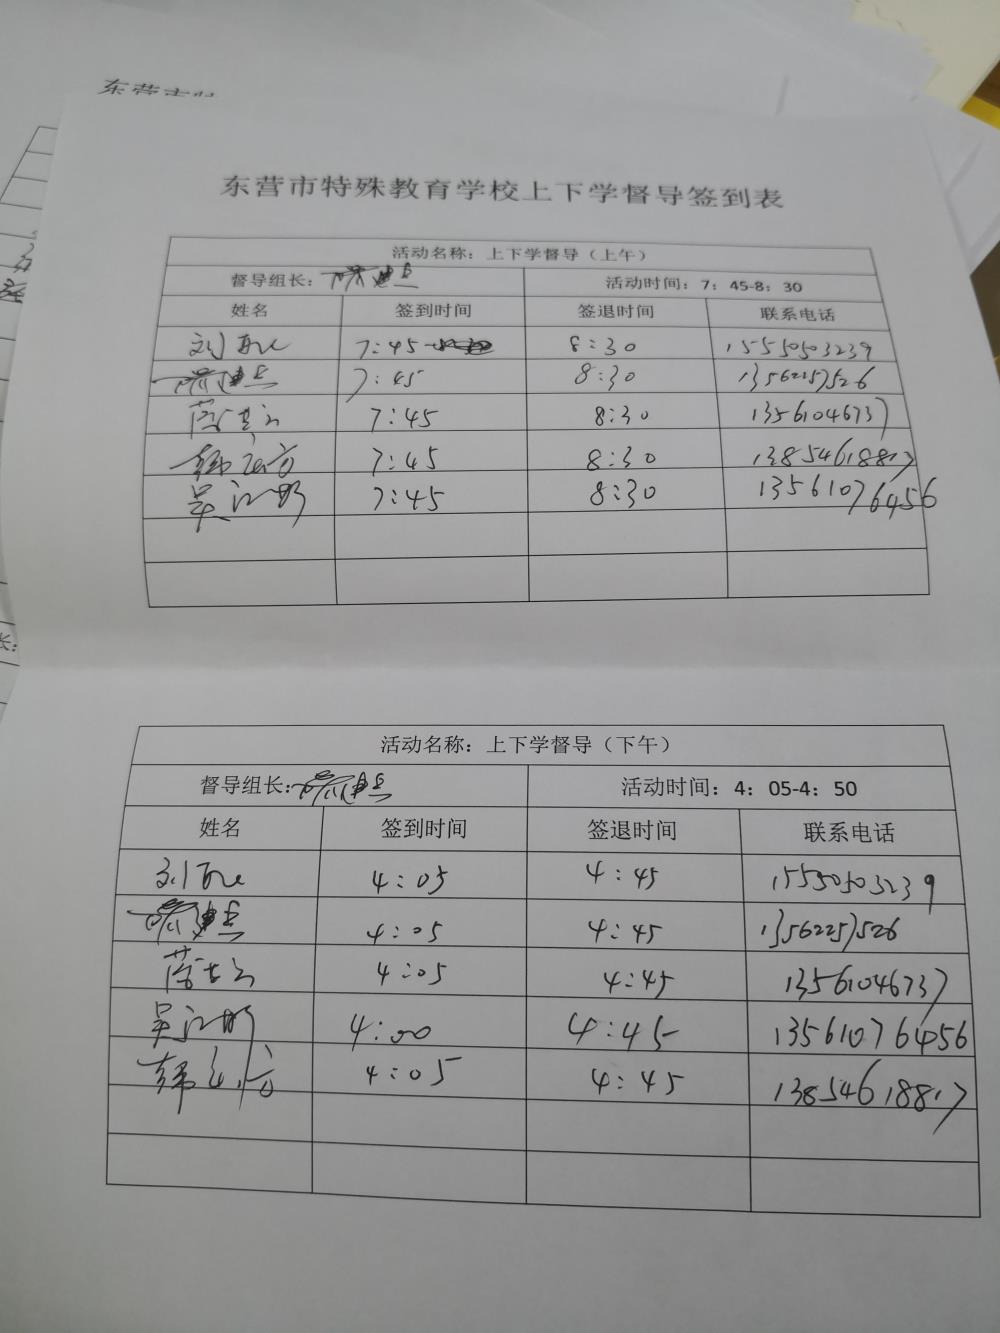 东营市特
东营市特殊教育学校上下学督导签到表
活动名称：上下学督导（上午）
督导组长： 活动时间：7：45-8：30
姓名 签到时间 签退时间 联系电话
刘 7:45 8:30 15550503239
7:45 8:30 13562257526
7:45 8:30 13561046737
韩 7:45 8:30 13854618817
吴 7:45 8:30 13561076456
长：
活动名称：上下学督导（下午）
督导组长： 活动时间：4：05-4：50
姓名 签到时间 签退时间 联系电话
刘 4:05 4:45 15550503239
4:05 4:45 13562257526
4:05 4:45 13561046737
吴 4:00 4:45 13561076456
韩 4:05 4:45 13854618817